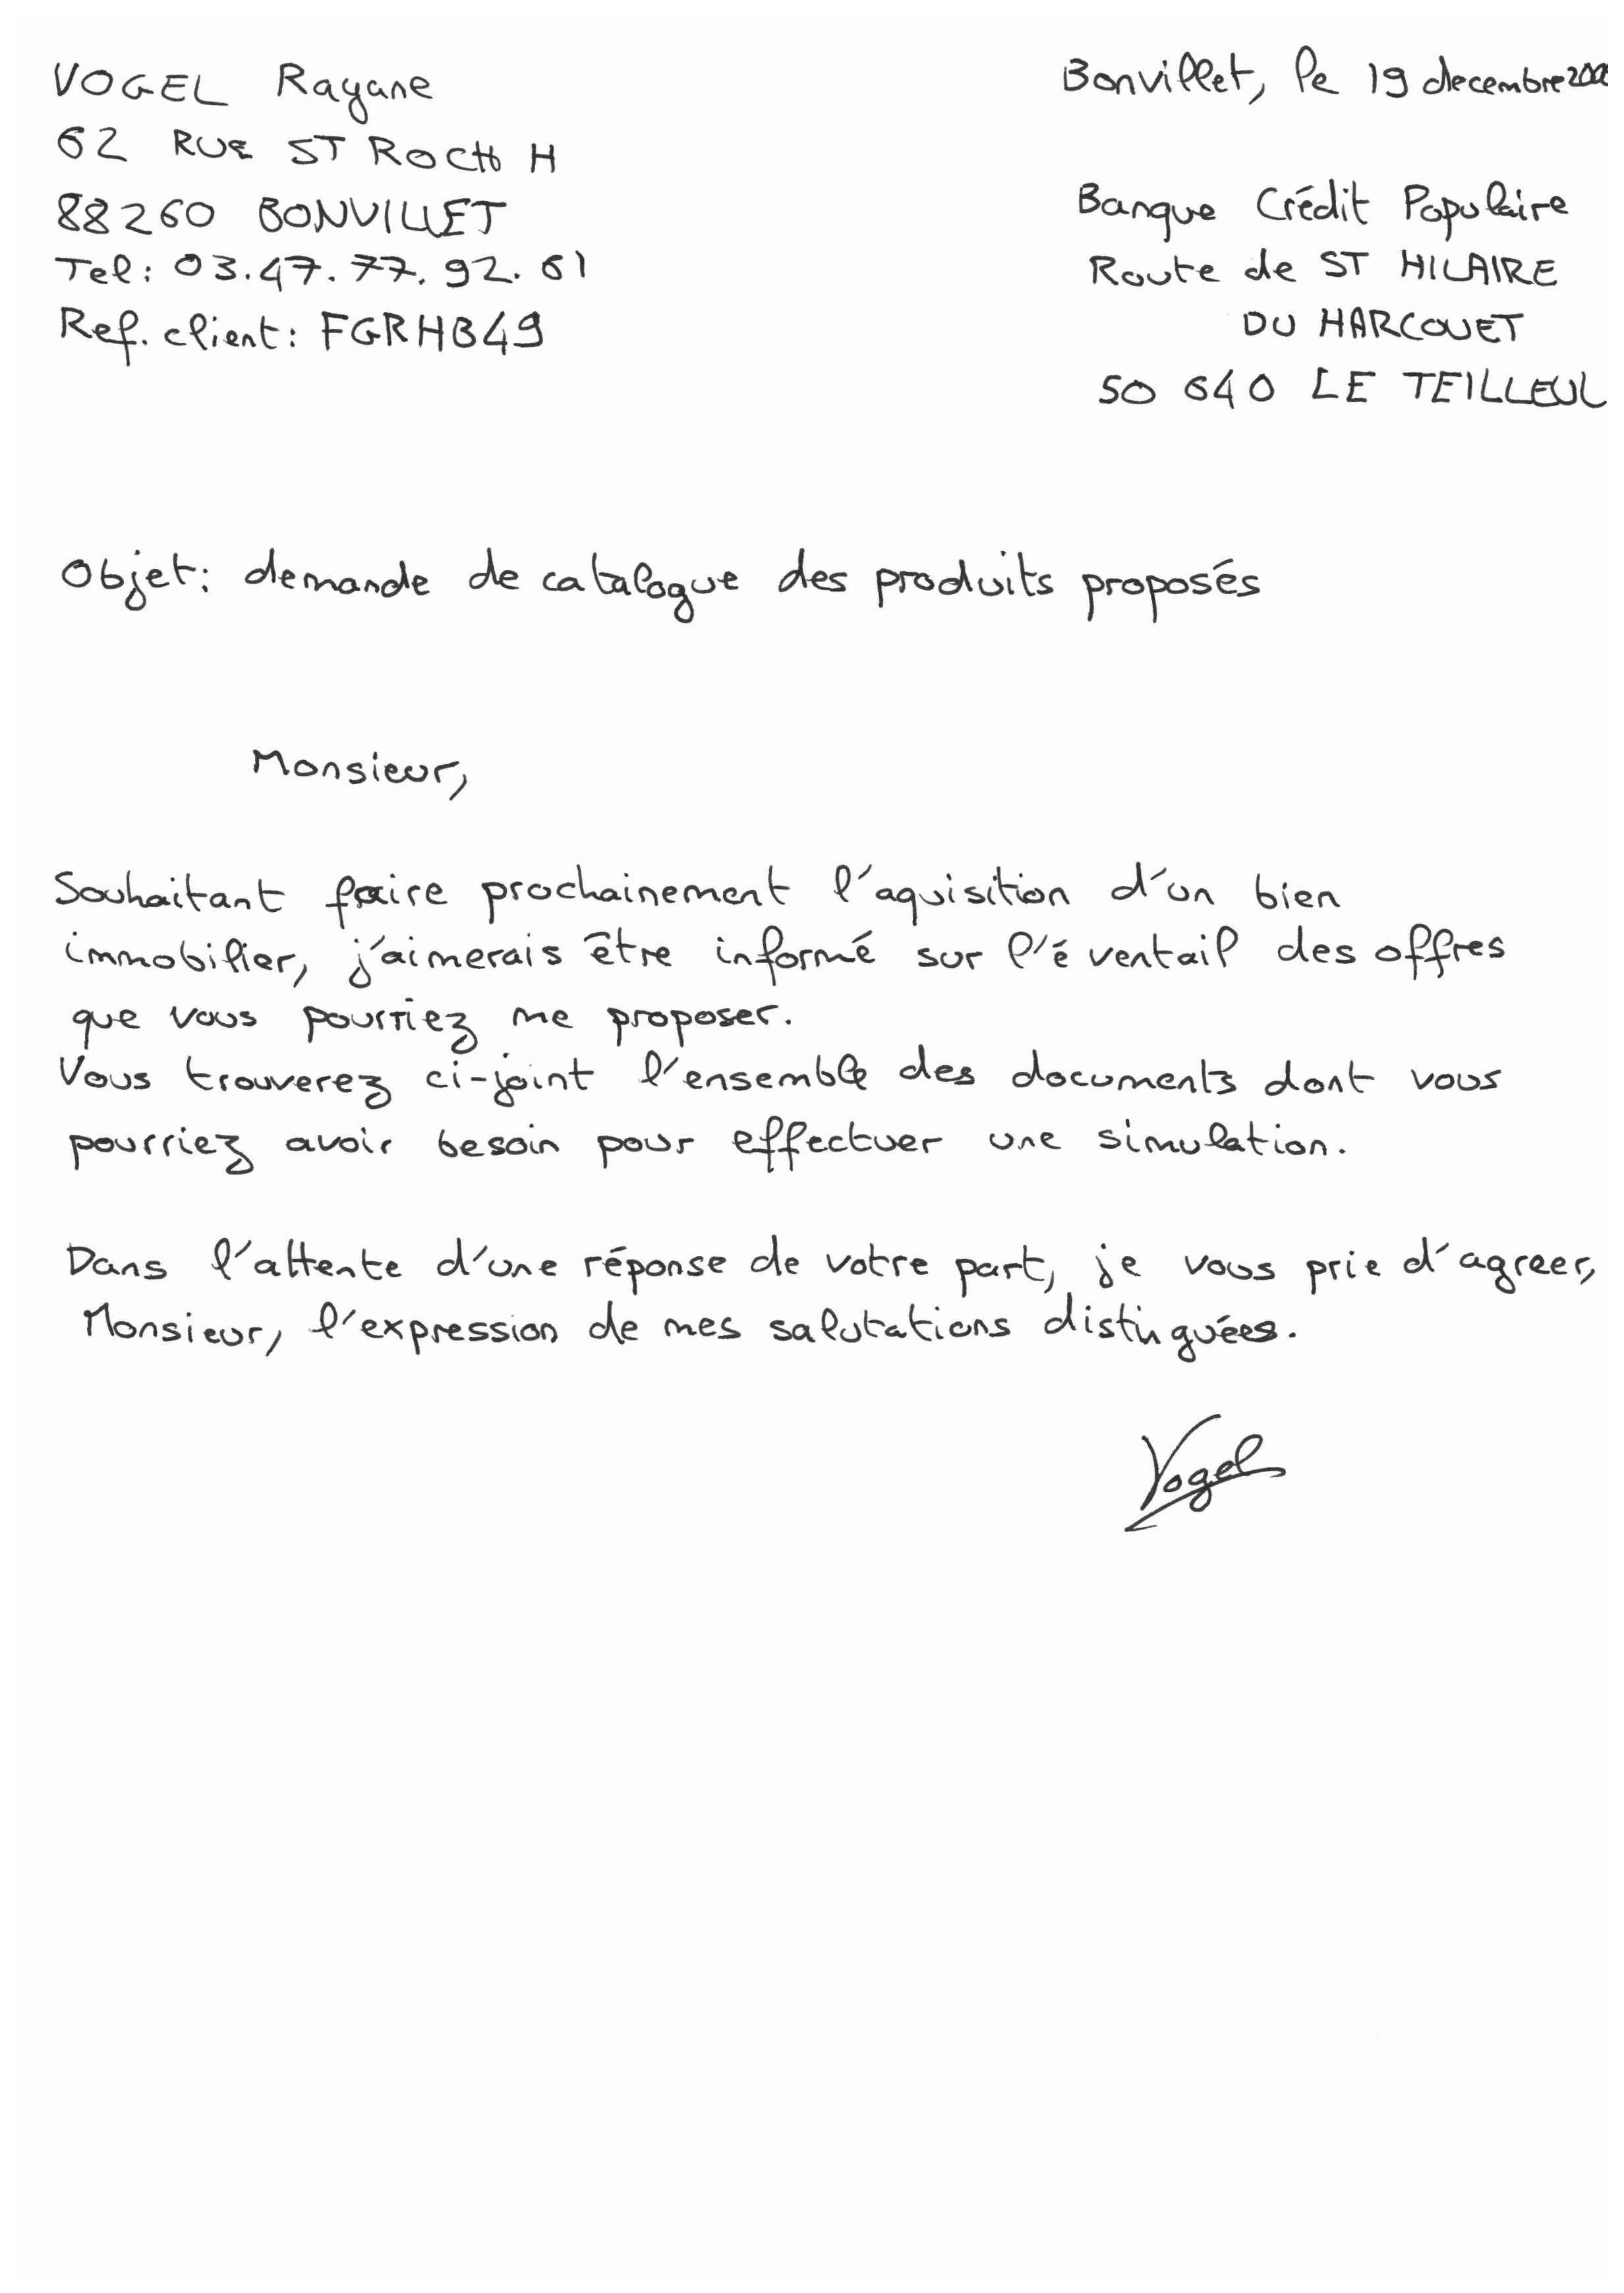 VOGEL Rayane
62 RUE ST ROCH H
88260 BONVILLET
Tel: 03.47.77.92.61
Ref. client: FGRHB49
Bonvillet, le 19 decembre
Banque Crédit Populaire
Route de ST HILAIRE
DU HARCOUET
50 640 LE TEILLEUL
Objet: demande de catalogue des produits proposés
Monsieur,
Souhaitant faire prochainement l'aquisition d'un bien
immobilier, j'aimerais être informé sur l'éventail des offres
que vous pourriez me proposer.
Vous trouverez ci-joint l'ensemble des documents dont vous
pourriez avoir besoin pour effectuer une simulation.
Dans l'attente d'une réponse de votre part, je vous prie d'agreer,
Monsieur, l'expression de mes salutations distinguées.
Vogel